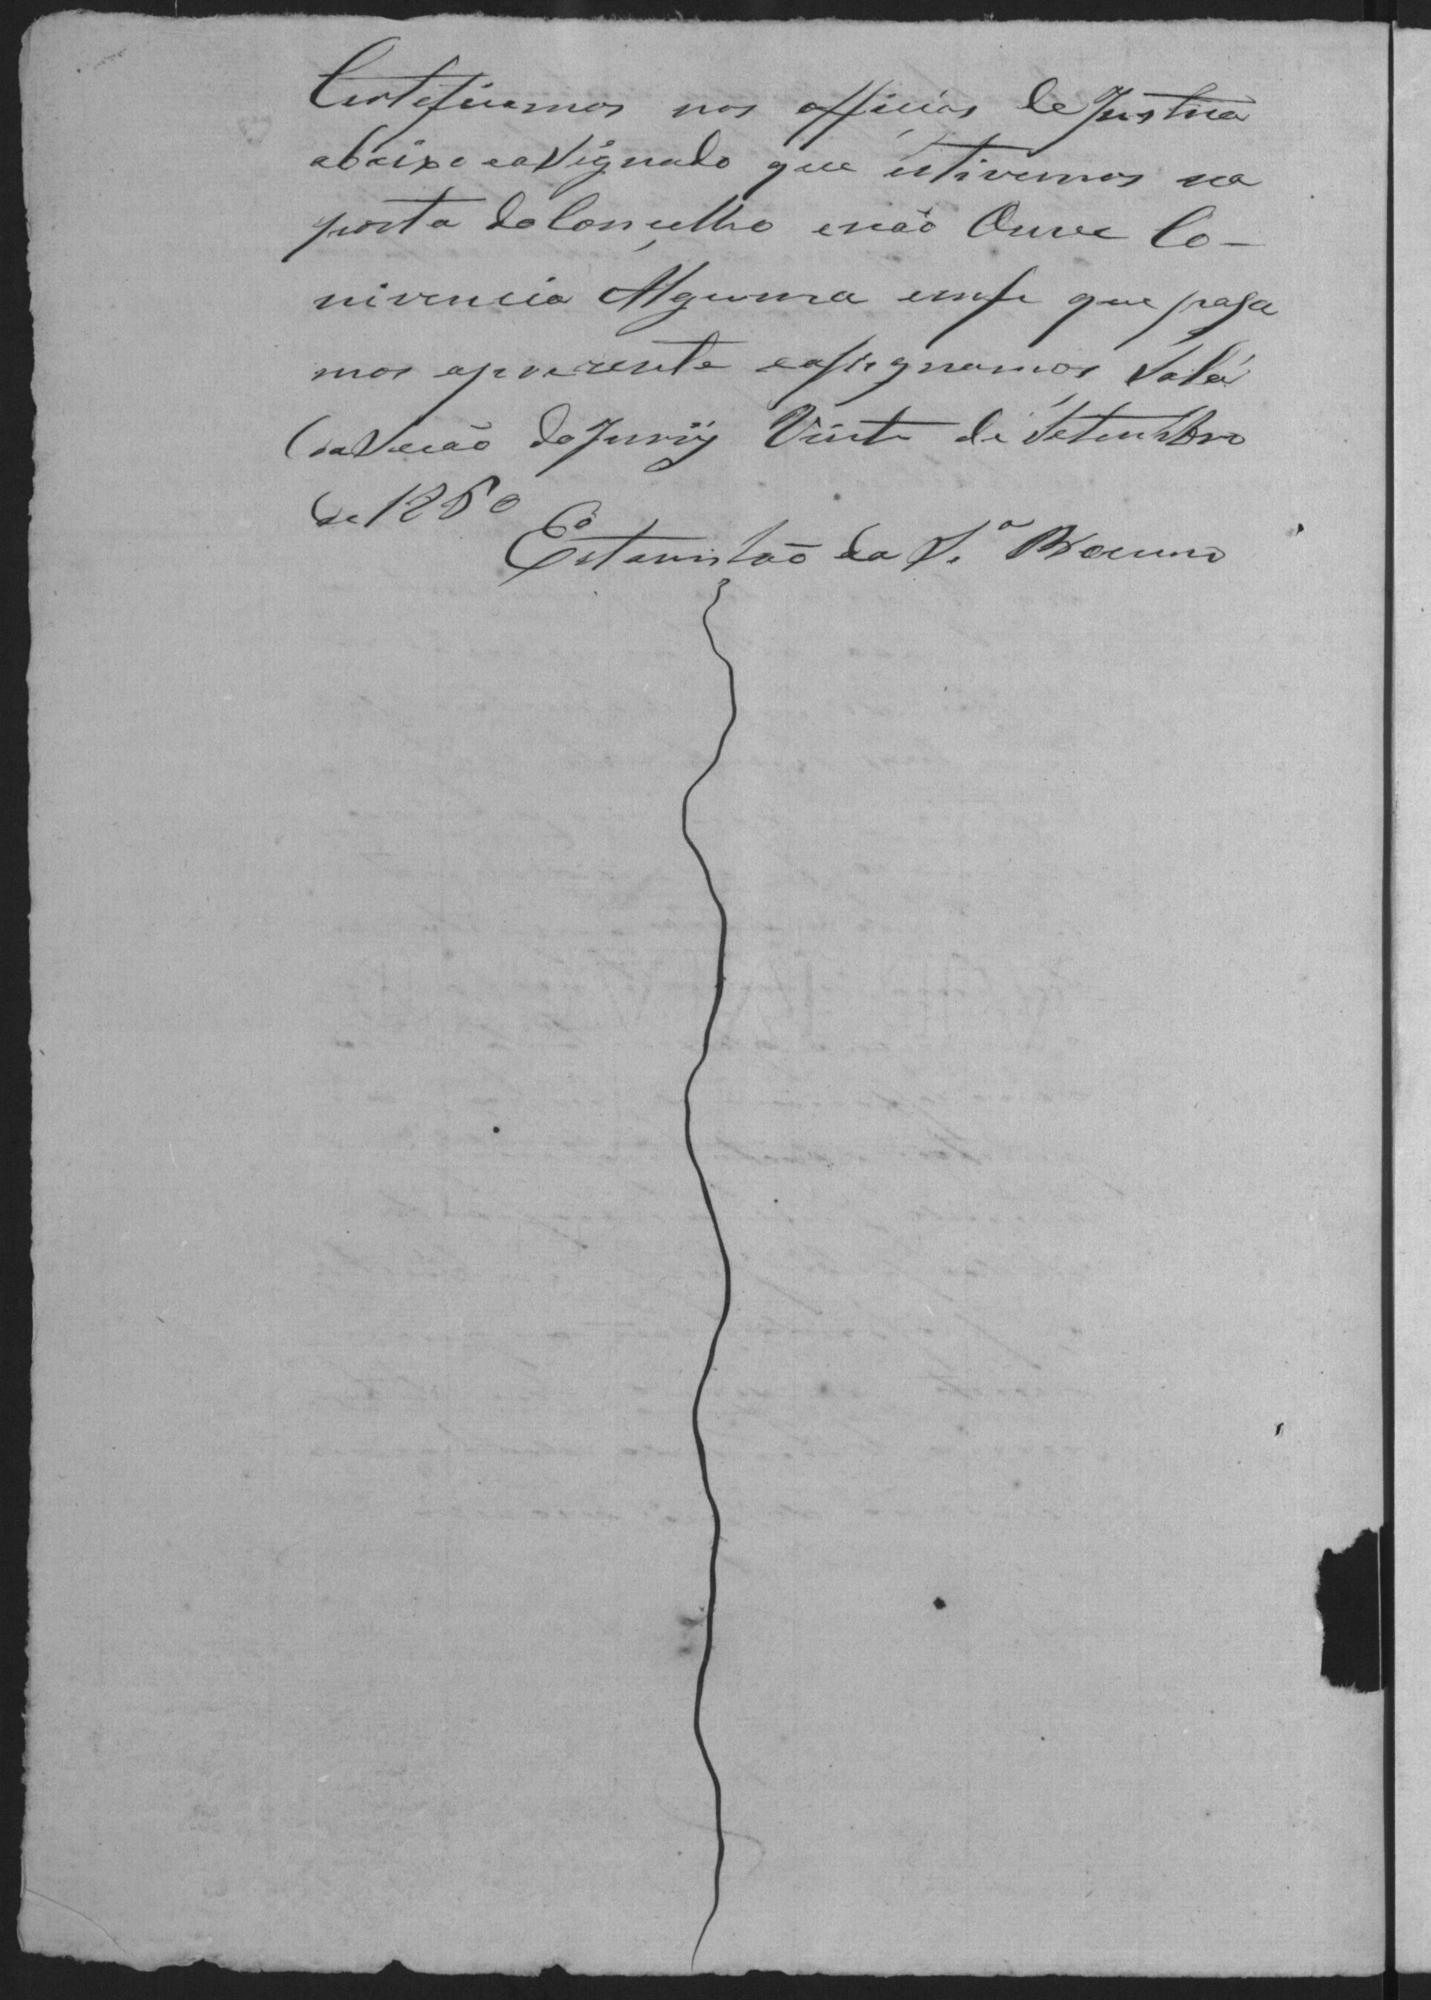 Certeficamos nos officias de Justica
abaixo asignado que estivemos na
porta do Concelho enão Ouve Co-
nivencia Alguma emfe que pasa
mos apresente easignamos Sala
da Seção do Jurij Vinte de Setembro
de 1880
Estanislao da S.ª